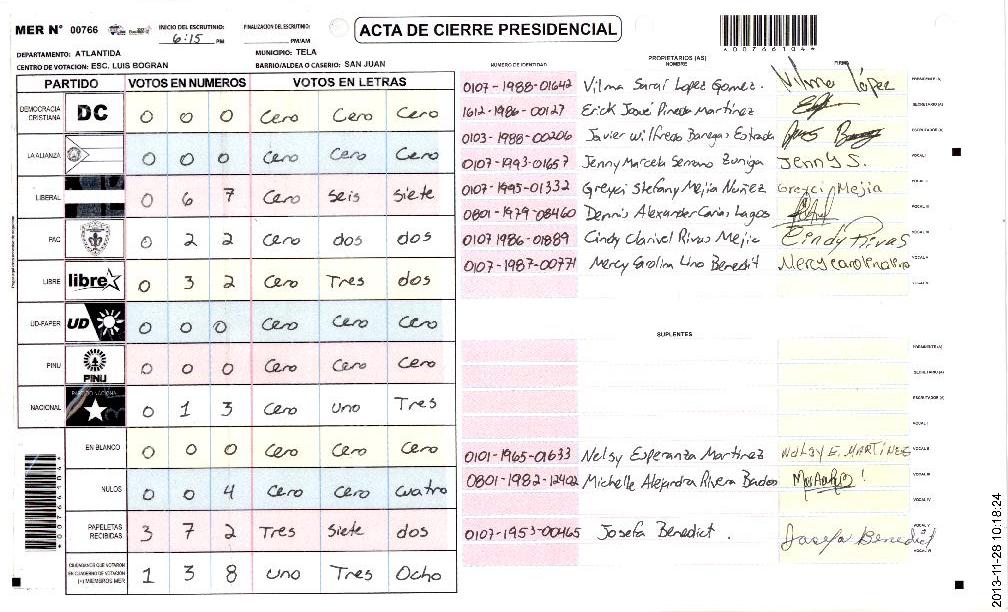 MER N° 00766 INICIO DEL ESCRUTINIO: 6:15 PM FINALIZACION DEL ESCRUTINIO: PM/AM
ACTA DE CIERRE PRESIDENCIAL
*00766104*
DEPARTAMENTO: ATLANTIDA MUNICIPIO: TELA
CENTRO DE VOTACION: ESC. LUIS BOGRAN BARRIO/ALDEA O CASERIO: SAN JUAN
PARTIDO VOTOS EN NUMEROS VOTOS EN LETRAS
DEMOCRACIA CRISTIANA DC 0 0 0 Cero Cero Cero
LA ALIANZA 0 0 0 Cero Cero Cero
LIBERAL 0 6 7 Cero Seis Siete
PAC 0 2 2 Cero dos dos
LIBRE libre 0 3 2 Cero Tres dos
UD-FAPER UD 0 0 0 Cero Cero Cero
PINU PINU 0 0 0 Cero Cero Cero
NACIONAL PARTIDO NACIONAL 0 1 3 Cero uno Tres
EN BLANCO 0 0 0 Cero Cero Cero
NULOS 0 0 4 Cero Cero Cuatro
PAPELETAS RECIBIDAS 3 7 2 Tres Siete dos
CIUDADANOS QUE VOTARON EN CUADERNO DE VOTACION (+) MIEMBROS MER 1 3 8 uno Tres Ocho
PROPIETARIOS (AS)
NUMERO DE IDENTIDAD NOMBRE FIRMA
0107-1988-01642 Vilma Sarai Lopez Gomez. Vilma López PRESIDENTE (A)
1612-1986-00127 Erick José Pineda Martínez SECRETARIO (A)
0103-1988-00206 Javier Wilfredo Banegas Estrada ESCRUTADOR (A)
0107-1993-01657 Jenny Marcela Serrano Zuniga Jenny S. VOCAL I
0107-1995-01332 Greyci Stefany Mejia Nuñez Greyci Mejia VOCAL II
0801-1979-08460 Dennis Alexander Carias Lagos VOCAL III
0107 1986-01889 Cindy Clarivel Rivas Mejia Cindy Rivas VOCAL IV
0107-1987-00771 Mercy Carolina Lino Benedit Mercy carolina Lino VOCAL V
VOCAL VI
SUPLENTES
PRESIDENTE (A)
SECRETARIO (A)
ESCRUTADOR (A)
VOCAL I
0101-1965-01633 Nelsy Esperanza Martinez Nelsy E. MARTINEZ VOCAL II
0801-1982-12402 Michelle Alejandra Rivera Bados VOCAL III
VOCAL IV
0107-1953-00465 Josefa Benedict. Josefa Benedict VOCAL V
VOCAL VI
*00766104*
2013-11-28 10:18:24